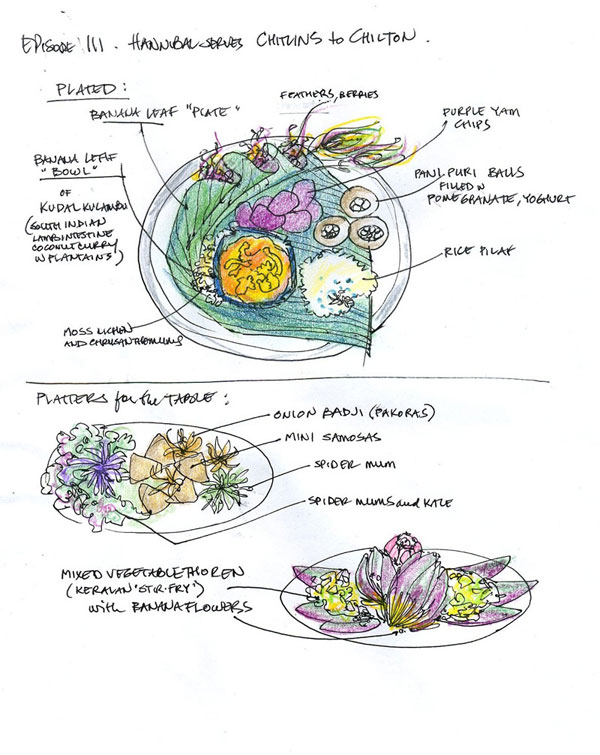 EPISODE III. HANNIBAL SERVES CHITLINS to CHILTON.
PLATED:
BANANA LEAF "PLATE"
FEATHERS, BERRIES
PURPLE YAM
CHIPS
BANANA LEAF
"BOWL"
OF
KUDAL KULAMBU
(SOUTH INDIAN
LAMB INTESTINE
COCONUT CURRY
W PLANTAINS)
PANI PURI BALLS
FILLED W
POMEGRANATE, YOGHURT
RICE PILAF
MOSS LICHEN
AND CHRYSANTHEMUMS
PLATTERS for the TABLE:
ONION BADJI (PAKORAS)
MINI SAMOSAS
SPIDER MUM
SPIDER MUMS and KALE
MIXED VEGETABLE THOREN
(KERALAN "STIR-FRY")
with BANANA FLOWERS